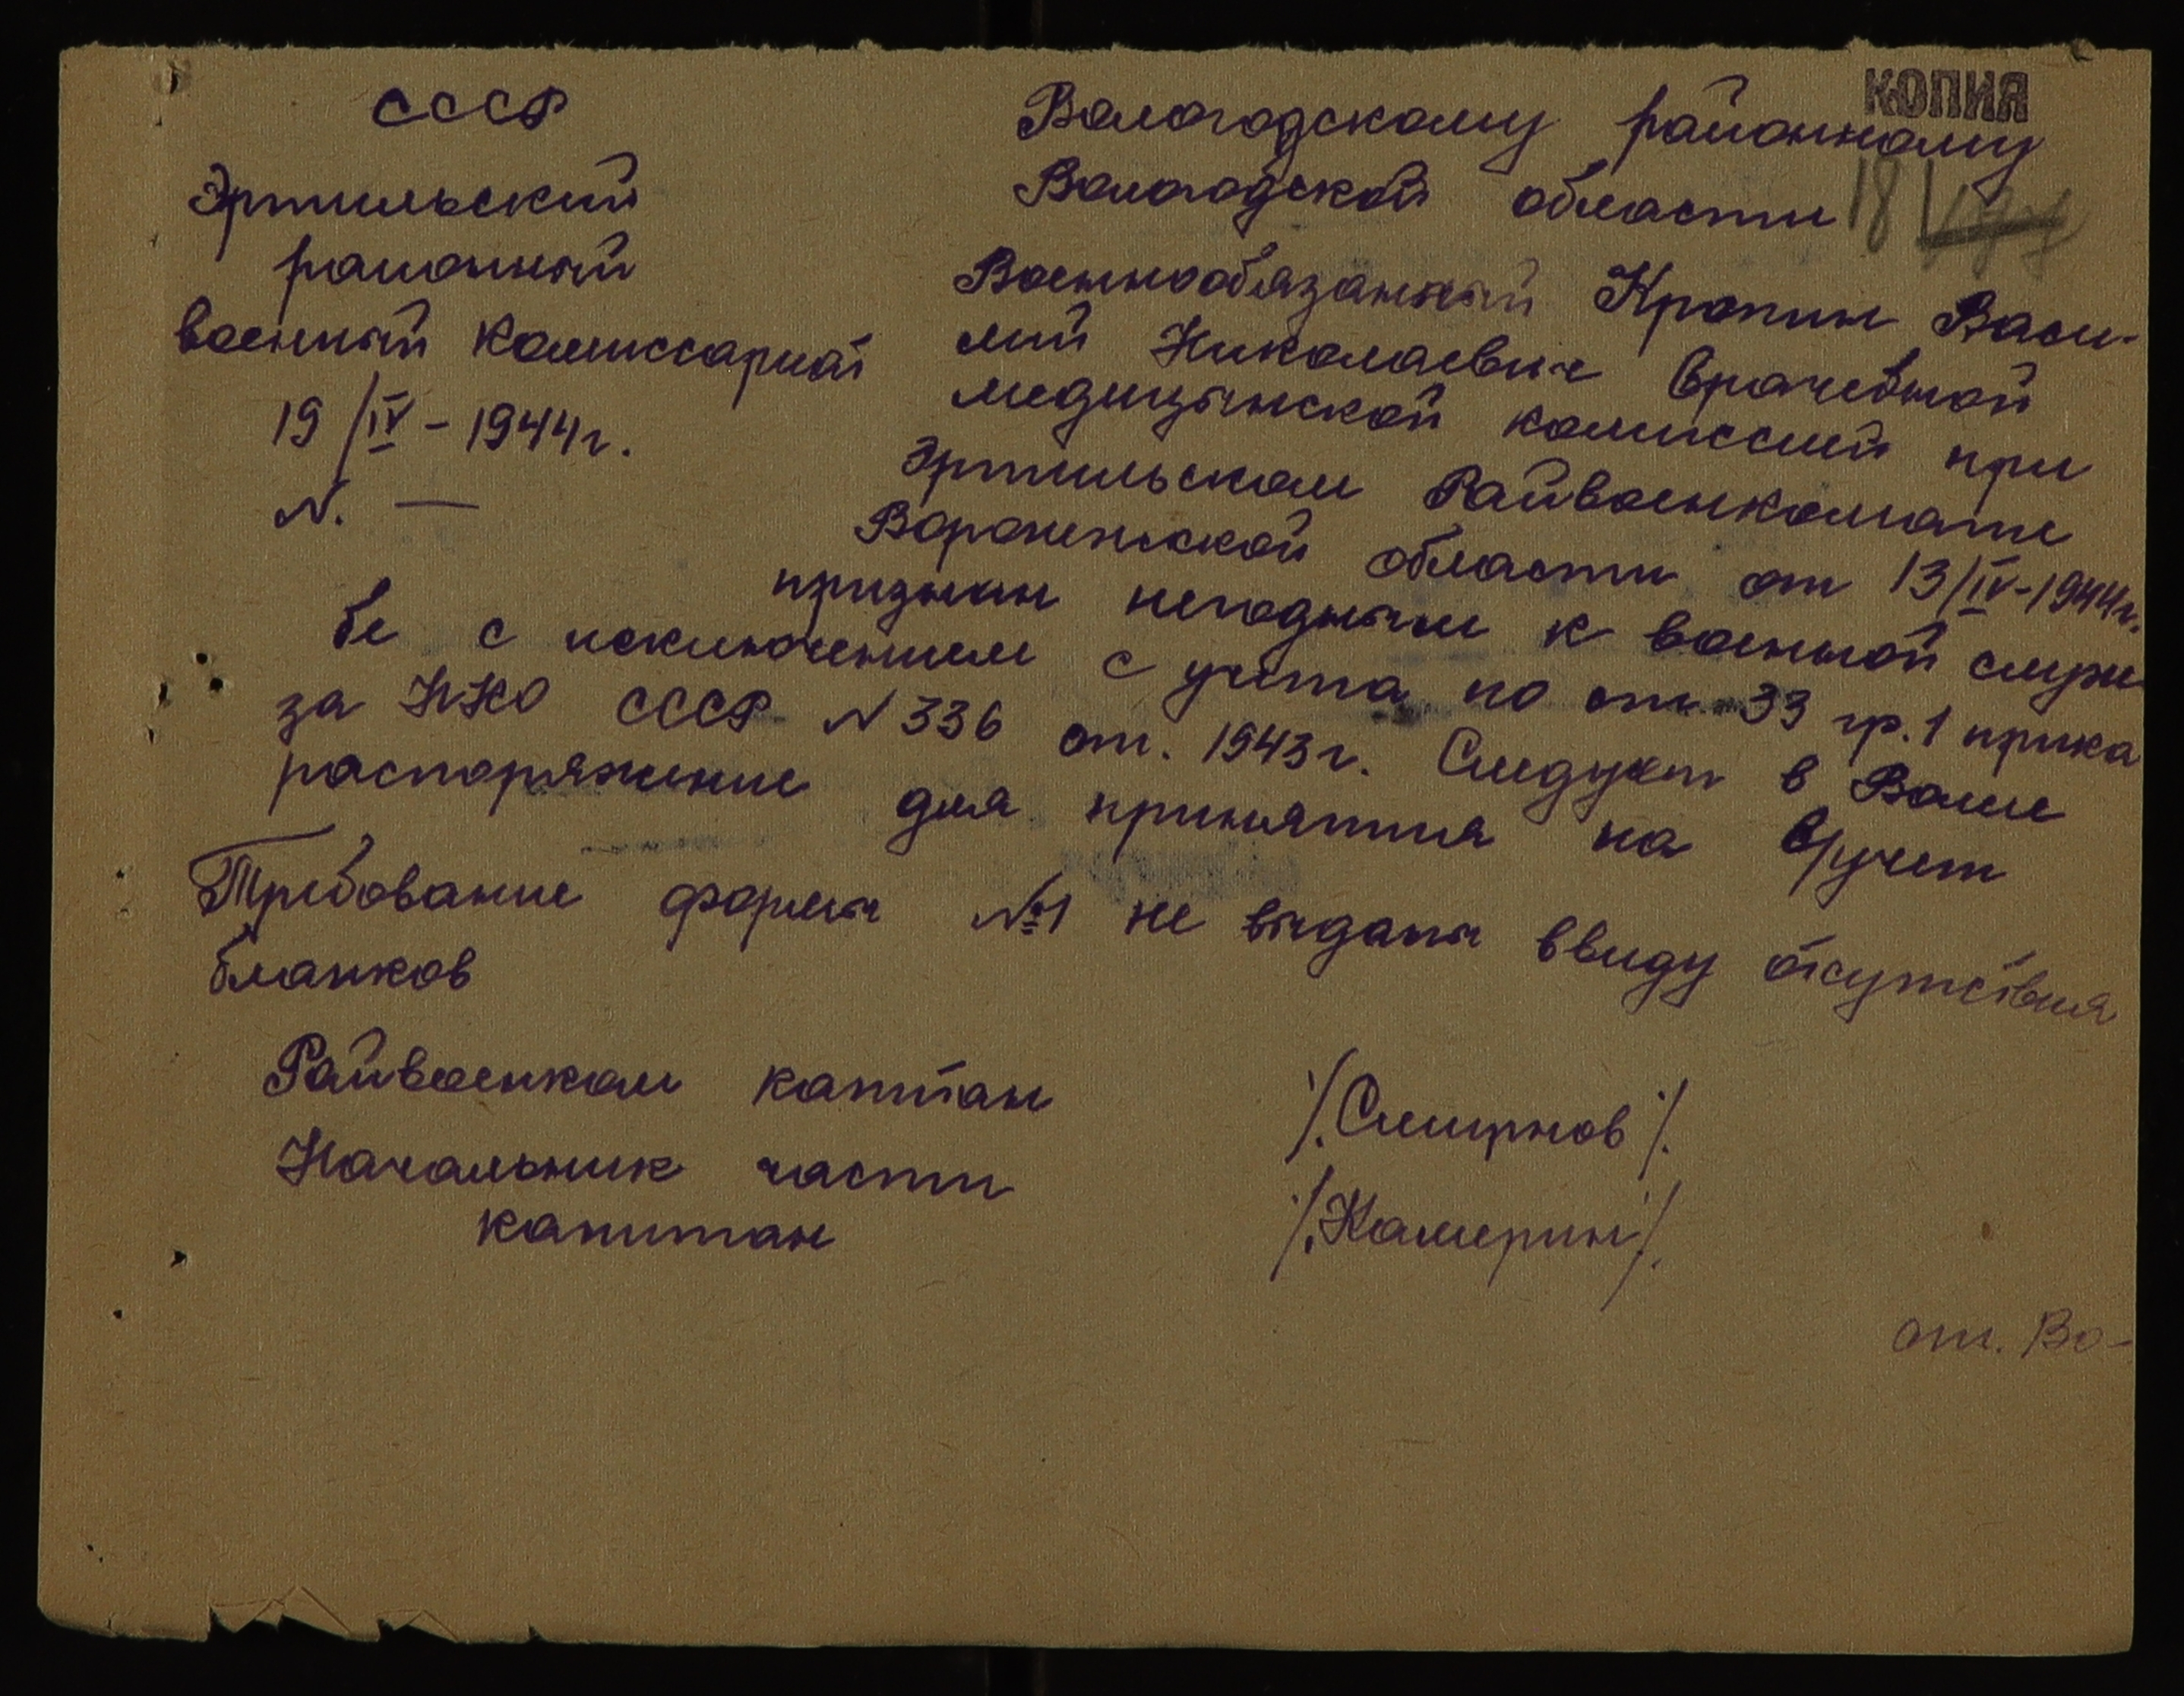 КОПИЯ
СССР
Эртильский
районный
военный комиссариат
19/IV-1944г.
N. —
Вологодскому районному
Вологодской области
18
Военнообязанный Кропин Васи-
лий Николаевич врачебной
медицинской комиссией при
Эртильском Райвоенкомате
Вороненжской области от 13/IV-1944г.
признан негодным к военной служ
бе с исключением с учета по ст. 33 гр. 1 прика
за НКО СССР N 336 от. 1943г. Следует в Ваше
распоряжение для принятия на в/учет
Требование формы №1 не выданы ввиду отсутствия
бланков
Райвоенком капитан /.Смирнов/.
Начальник части
капитан /.Камерин/.
от. Во-